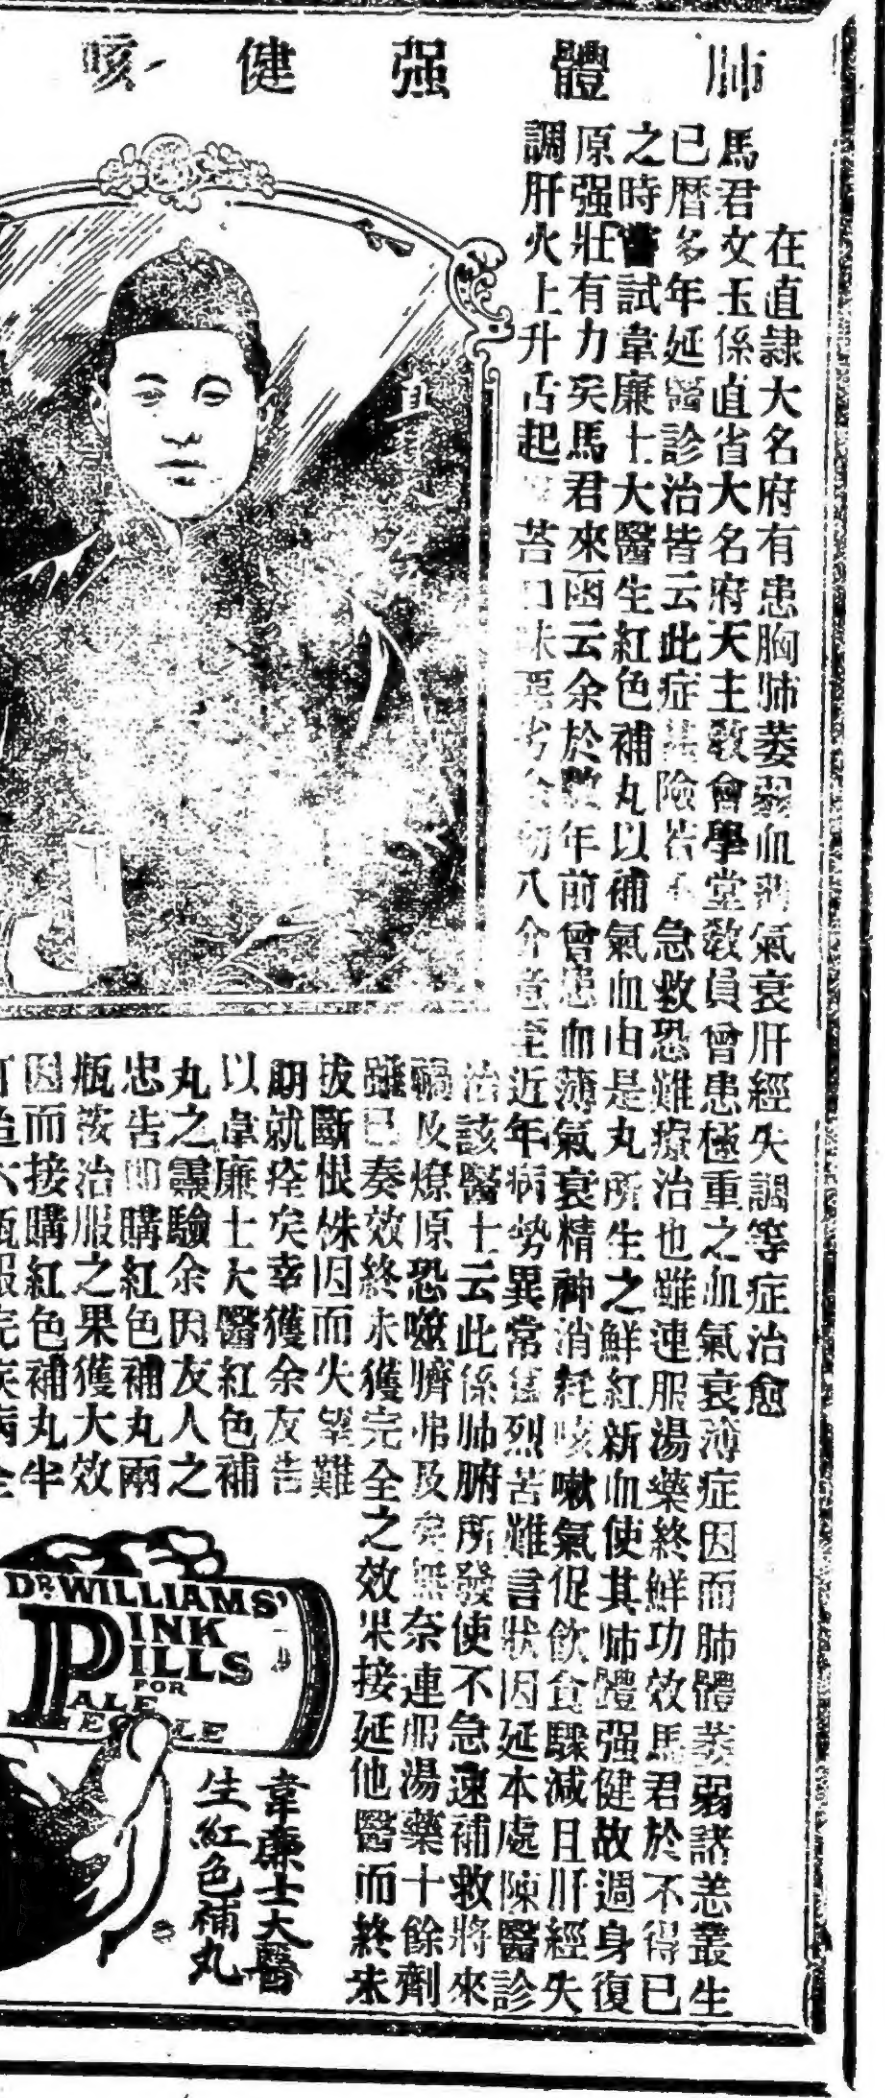 肺體强健咳
在直隸大名府有患胸肺萎弱血薄氣衰肝經失調等症治愈
馬君文玉係直省大名府天主敎會學堂敎員曾患極重之血氣衰薄症因而肺體萎弱諸恙叢生
已曆多年延醫診治皆云此症甚險若不急救恐難療治也雖連服湯藥終鮮功效馬君於不得已
之時嘗試韋廉士大醫生紅色補丸以補氣血由是丸所生之鮮紅新血使其肺體强健故週身復
原强壯有力矣馬君來函云余於數年前曾患血薄氣衰精神消耗咳嗽氣促飲食驟減且肝經失
調肝火上升舌起苔口味惡劣余初不介意至近年病勢異常烈苦難言狀因延本處陳醫診
治該醫士云此係肺腑所發使不急速補救將來
禍及燎原恐噬臍弗及矣無奈連服湯藥十餘劑
雖已奏效終未獲完全之效果接延他醫而終未
拔斷根株因而失望難
期就痊矣幸獲余友告
以韋廉士大醫紅色補
丸之靈驗余因友人之
忠告卽購紅色補丸兩
瓶按治服之果獲大效
因而接購紅色補丸半
打迨六瓶服完疾病全
DR. WILLIAMS'
PINK
PILLS
FOR
PALE
PEOPLE
韋廉士大醫
生紅色補丸